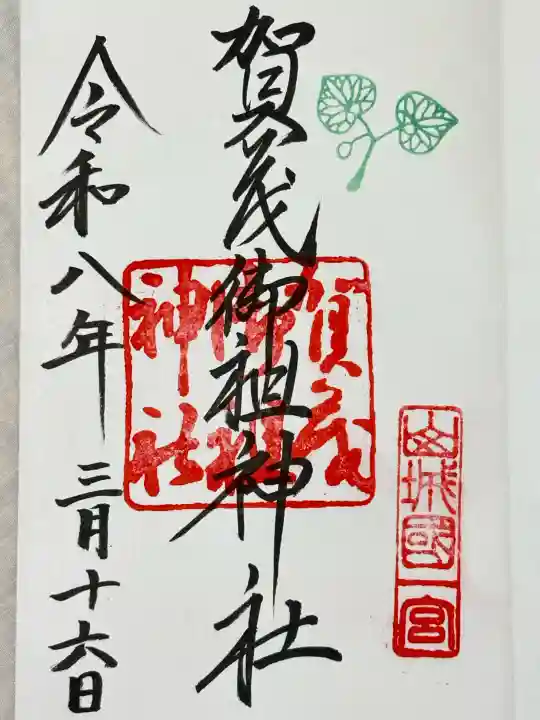 山城國一宮
賀茂御祖神社
賀茂
御祖
神社
令和八年三月十六日